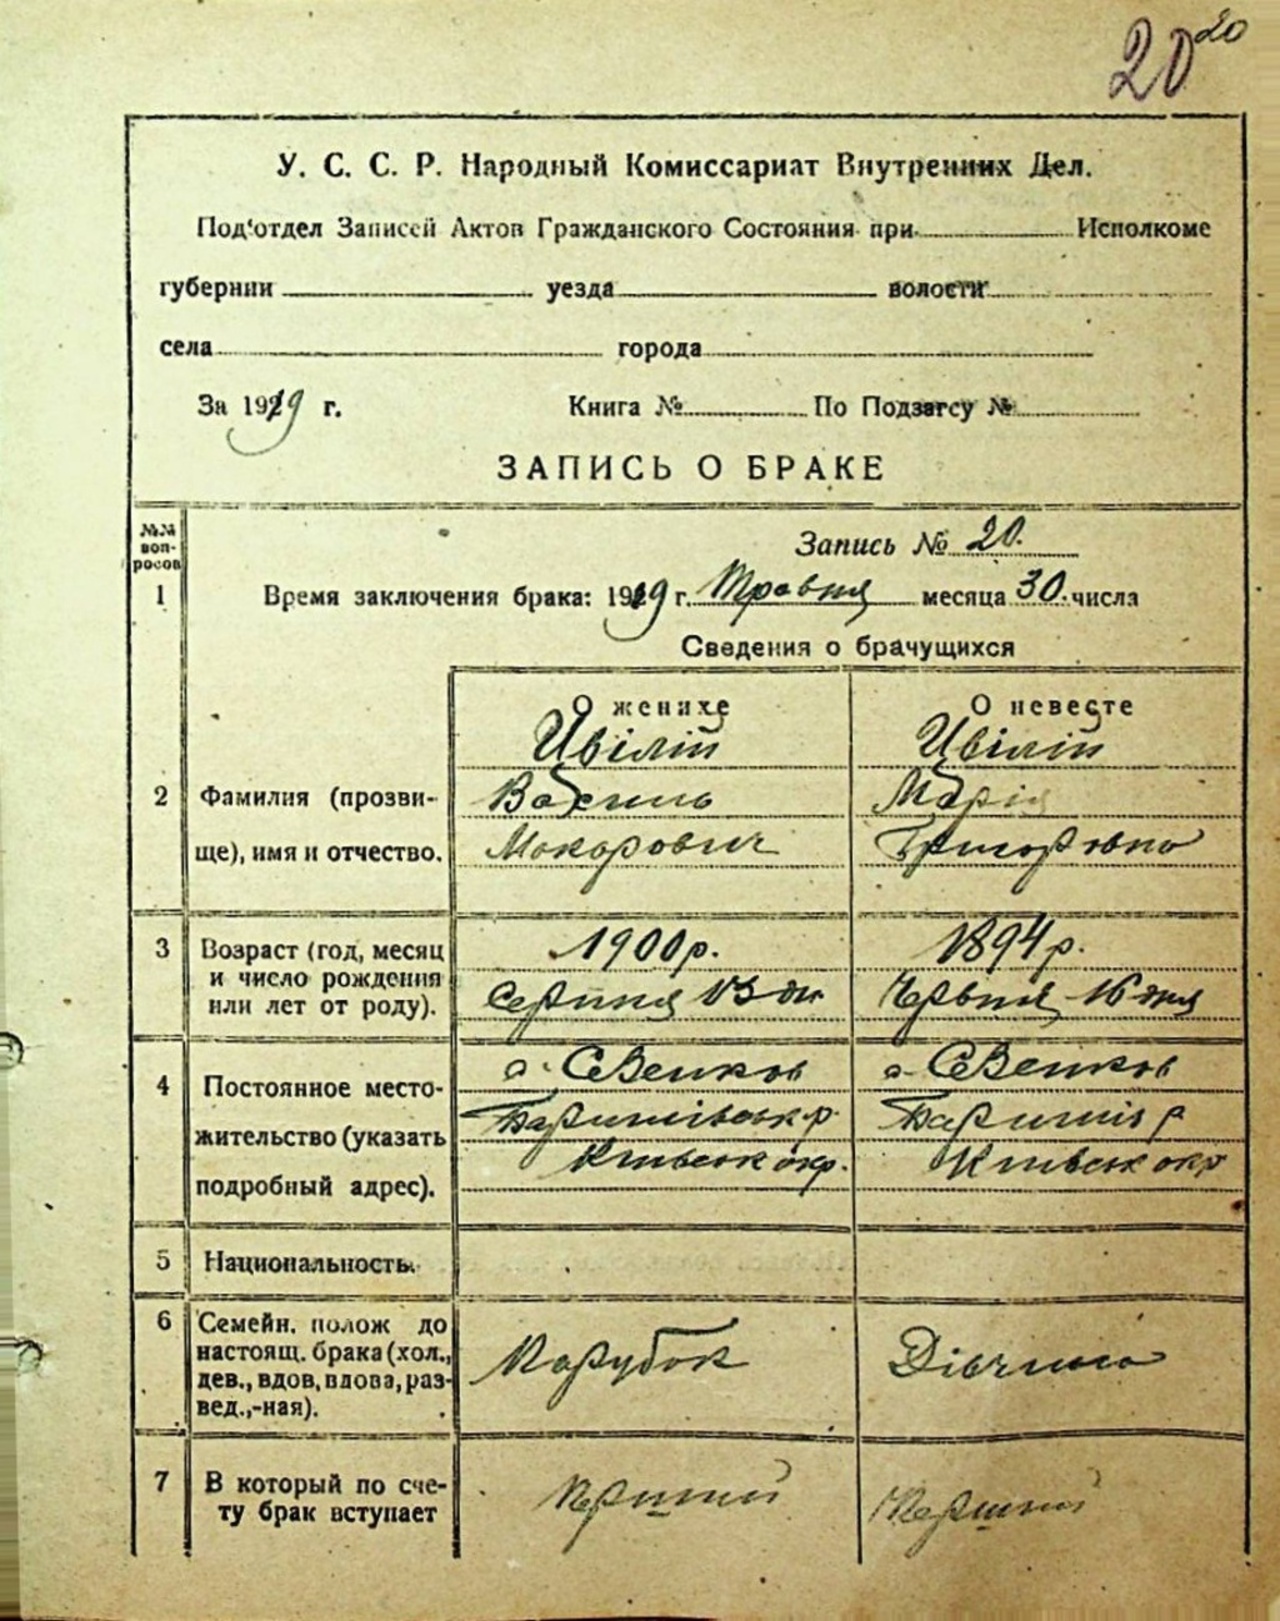 20 20
У. С. С. Р. Народный Комиссариат Внутренних Дел.
Под'отдел Записей Актов Гражданского Состояния при Исполкоме
губернии уезда волости
села города
За 1929 г. Книга № По Подзагсу №
ЗАПИСЬ О БРАКЕ
№№ вопросов
Запись № 20.
1 Время заключения брака: 1929 г. Травня месяца 30. числа
Сведения о брачущихся
О женихе О невесте
Цвілій Цвілій
2 Фамилия (прозви- Василь Марія
ще), имя и отчество. Макарович Григорівна
3 Возраст (год, месяц 1900 р. 1894 р.
и число рождения Серпня 13 дн. Червня 16 дня
или лет от роду).
4 Постоянное место- с. Сезенков с. Сезенков
жительство (указать Баришівськ р. Баришів р
подробный адрес). Київськ окр. Київськ окр
5 Национальность.
6 Семейн. полож до
настоящ. брака (хол., Парубок Дівчина
дев., вдов, вдова, раз-
вед.,-ная).
7 В который по сче- Перший Перший
ту брак вступает